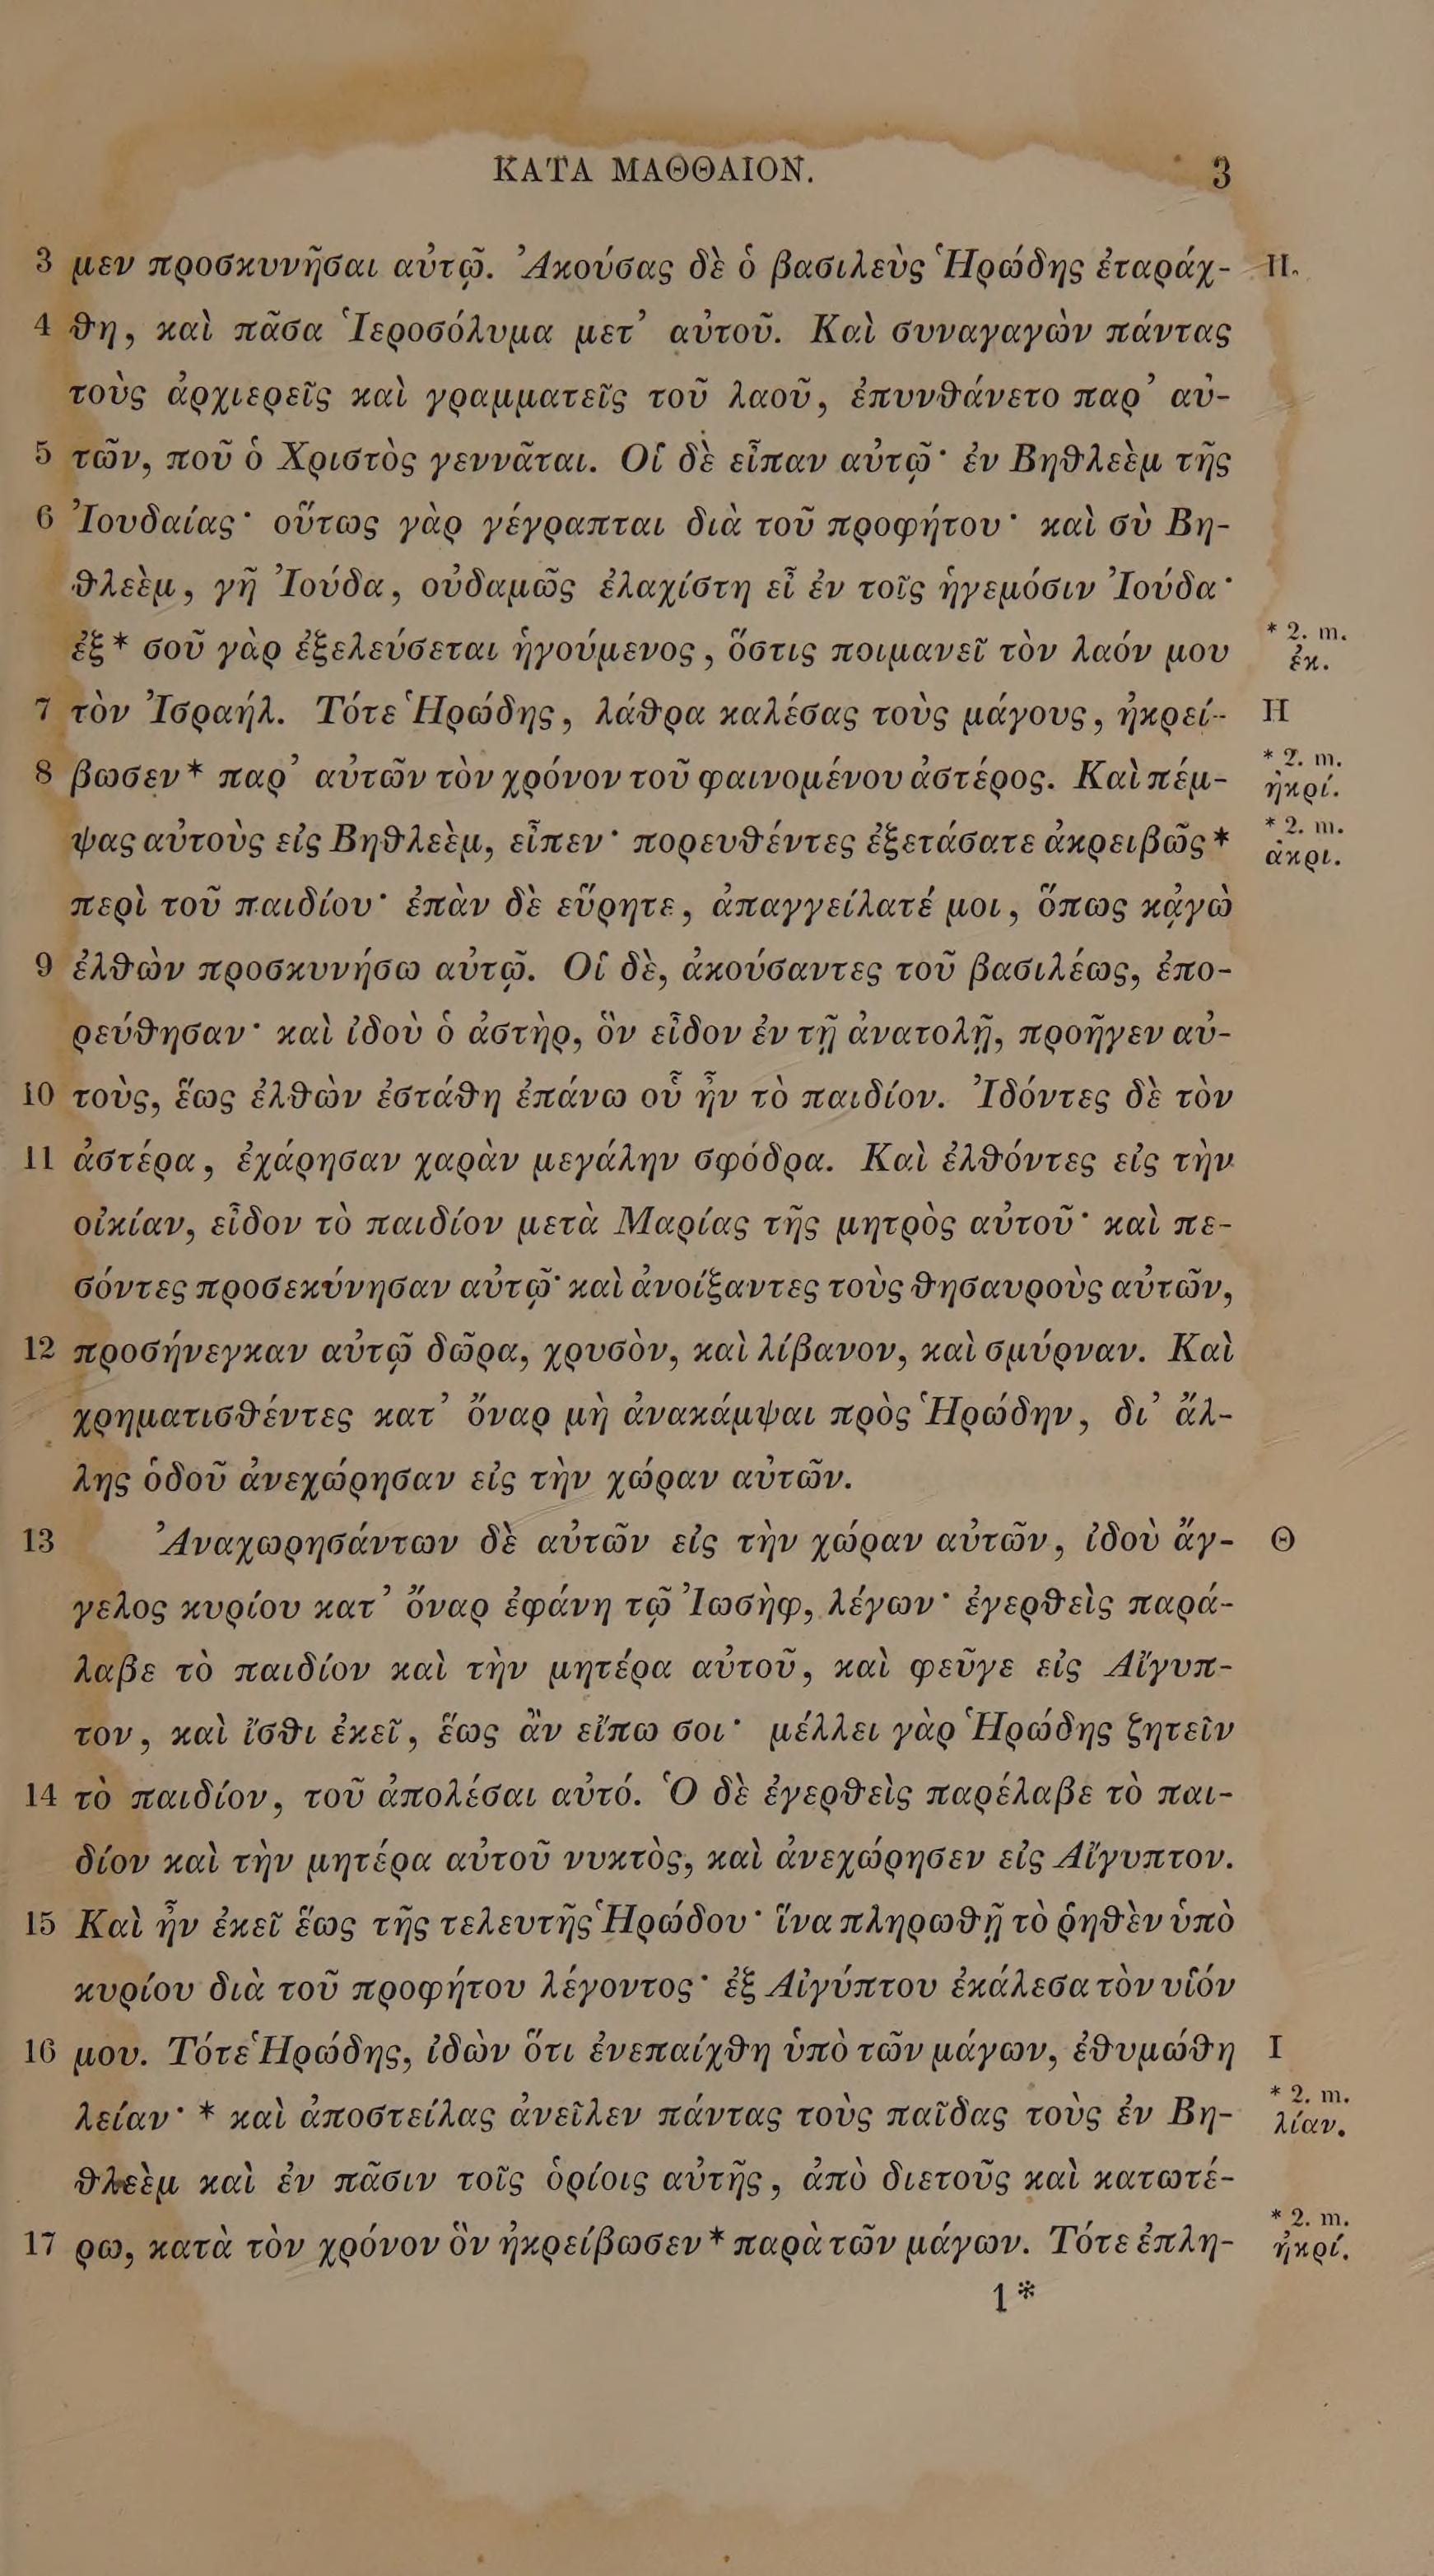 ΚΑΤΑ ΜΑΘΘΑΙΟΝ. 3
3 μεν προσκυνῆσαι αὐτῷ. Ἀκούσας δὲ ὁ βασιλεὺς Ἡρώδης ἐταράχ- Π.
4 θη, καὶ πᾶσα Ἱεροσόλυμα μετ’ αὐτοῦ. Καὶ συναγαγὼν πάντας
τοὺς ἀρχιερεῖς καὶ γραμματεῖς τοῦ λαοῦ, ἐπυνθάνετο παρ’ αὐ-
5 τῶν, ποῦ ὁ Χριστὸς γεννᾶται. Οἱ δὲ εἶπαν αὐτῷ· ἐν Βηθλεὲμ τῆς
6 Ἰουδαίας· οὕτως γὰρ γέγραπται διὰ τοῦ προφήτου· καὶ σὺ Βη-
θλεὲμ, γῆ Ἰούδα, οὐδαμῶς ἐλαχίστη εἶ ἐν τοῖς ἡγεμόσιν Ἰούδα·
ἐξ* σοῦ γὰρ ἐξελεύσεται ἡγούμενος, ὅστις ποιμανεῖ τὸν λαόν μου * 2. m. ἐκ.
7 τὸν Ἰσραήλ. Τότε Ἡρώδης, λάθρα καλέσας τοὺς μάγους, ἠκρεί- Η
8 βωσεν* παρ’ αὐτῶν τὸν χρόνον τοῦ φαινομένου ἀστέρος. Καὶ πέμ- * 2. m. ἠκρί.
ψας αὐτοὺς εἰς Βηθλεὲμ, εἶπεν· πορευθέντες ἐξετάσατε ἀκρειβῶς* * 2. m. ἀκρι.
περὶ τοῦ παιδίου· ἐπὰν δὲ εὕρητε, ἀπαγγείλατέ μοι, ὅπως κᾀγὼ
9 ἐλθὼν προσκυνήσω αὐτῷ. Οἱ δὲ, ἀκούσαντες τοῦ βασιλέως, ἐπο-
ρεύθησαν· καὶ ἰδοὺ ὁ ἀστὴρ, ὃν εἶδον ἐν τῇ ἀνατολῇ, προῆγεν αὐ-
10 τοὺς, ἕως ἐλθὼν ἐστάθη ἐπάνω οὗ ἦν τὸ παιδίον. Ἰδόντες δὲ τὸν
11 ἀστέρα, ἐχάρησαν χαρὰν μεγάλην σφόδρα. Καὶ ἐλθόντες εἰς τὴν
οἰκίαν, εἶδον τὸ παιδίον μετὰ Μαρίας τῆς μητρὸς αὐτοῦ· καὶ πε-
σόντες προσεκύνησαν αὐτῷ· καὶ ἀνοίξαντες τοὺς θησαυροὺς αὐτῶν,
12 προσήνεγκαν αὐτῷ δῶρα, χρυσὸν, καὶ λίβανον, καὶ σμύρναν. Καὶ
χρηματισθέντες κατ’ ὄναρ μὴ ἀνακάμψαι πρὸς Ἡρώδην, δι’ ἄλ-
λης ὁδοῦ ἀνεχώρησαν εἰς τὴν χώραν αὐτῶν.
13 Ἀναχωρησάντων δὲ αὐτῶν εἰς τὴν χώραν αὐτῶν, ἰδοὺ ἄγ- Θ
γελος κυρίου κατ’ ὄναρ ἐφάνη τῷ Ἰωσὴφ, λέγων· ἐγερθεὶς παρά-
λαβε τὸ παιδίον καὶ τὴν μητέρα αὐτοῦ, καὶ φεῦγε εἰς Αἴγυπ-
τον, καὶ ἴσθι ἐκεῖ, ἕως ἂν εἴπω σοι· μέλλει γὰρ Ἡρώδης ζητεῖν
14 τὸ παιδίον, τοῦ ἀπολέσαι αὐτό. Ὁ δὲ ἐγερθεὶς παρέλαβε τὸ παι-
δίον καὶ τὴν μητέρα αὐτοῦ νυκτὸς, καὶ ἀνεχώρησεν εἰς Αἴγυπτον.
15 Καὶ ἦν ἐκεῖ ἕως τῆς τελευτῆς Ἡρώδου· ἵνα πληρωθῇ τὸ ῥηθὲν ὑπὸ
κυρίου διὰ τοῦ προφήτου λέγοντος· ἐξ Αἰγύπτου ἐκάλεσα τὸν υἱόν
16 μου. Τότε Ἡρώδης, ἰδὼν ὅτι ἐνεπαίχθη ὑπὸ τῶν μάγων, ἐθυμώθη Ι
λείαν· * καὶ ἀποστείλας ἀνεῖλεν πάντας τοὺς παῖδας τοὺς ἐν Βη- * 2. m. λίαν.
θλεὲμ καὶ ἐν πᾶσιν τοῖς ὁρίοις αὐτῆς, ἀπὸ διετοῦς καὶ κατωτέ-
17 ρω, κατὰ τὸν χρόνον ὃν ἠκρείβωσεν* παρὰ τῶν μάγων. Τότε ἐπλη- * 2. m. ἠκρί.
1*